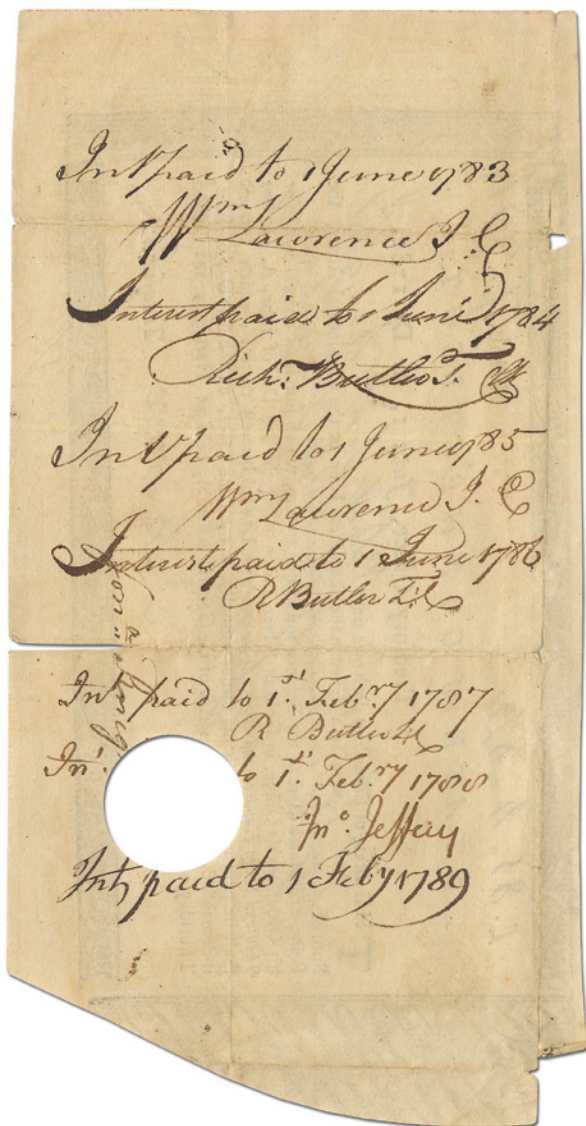 Int paid to 1 June 1783
Wm Lawrence J C
Interest paid to 1 June 1784
Rich: Butler T. C
Int paid to 1 June 1785
Wm Lawrence J. C
Interest paid to 1 June 1786
R Butler T. C
Int paid to 1st. Feb.ry 1787
R Butler T C
Int. to 1st. Feb.ry 1788
Jno. Jeffery
Int paid to 1 Feby 1789